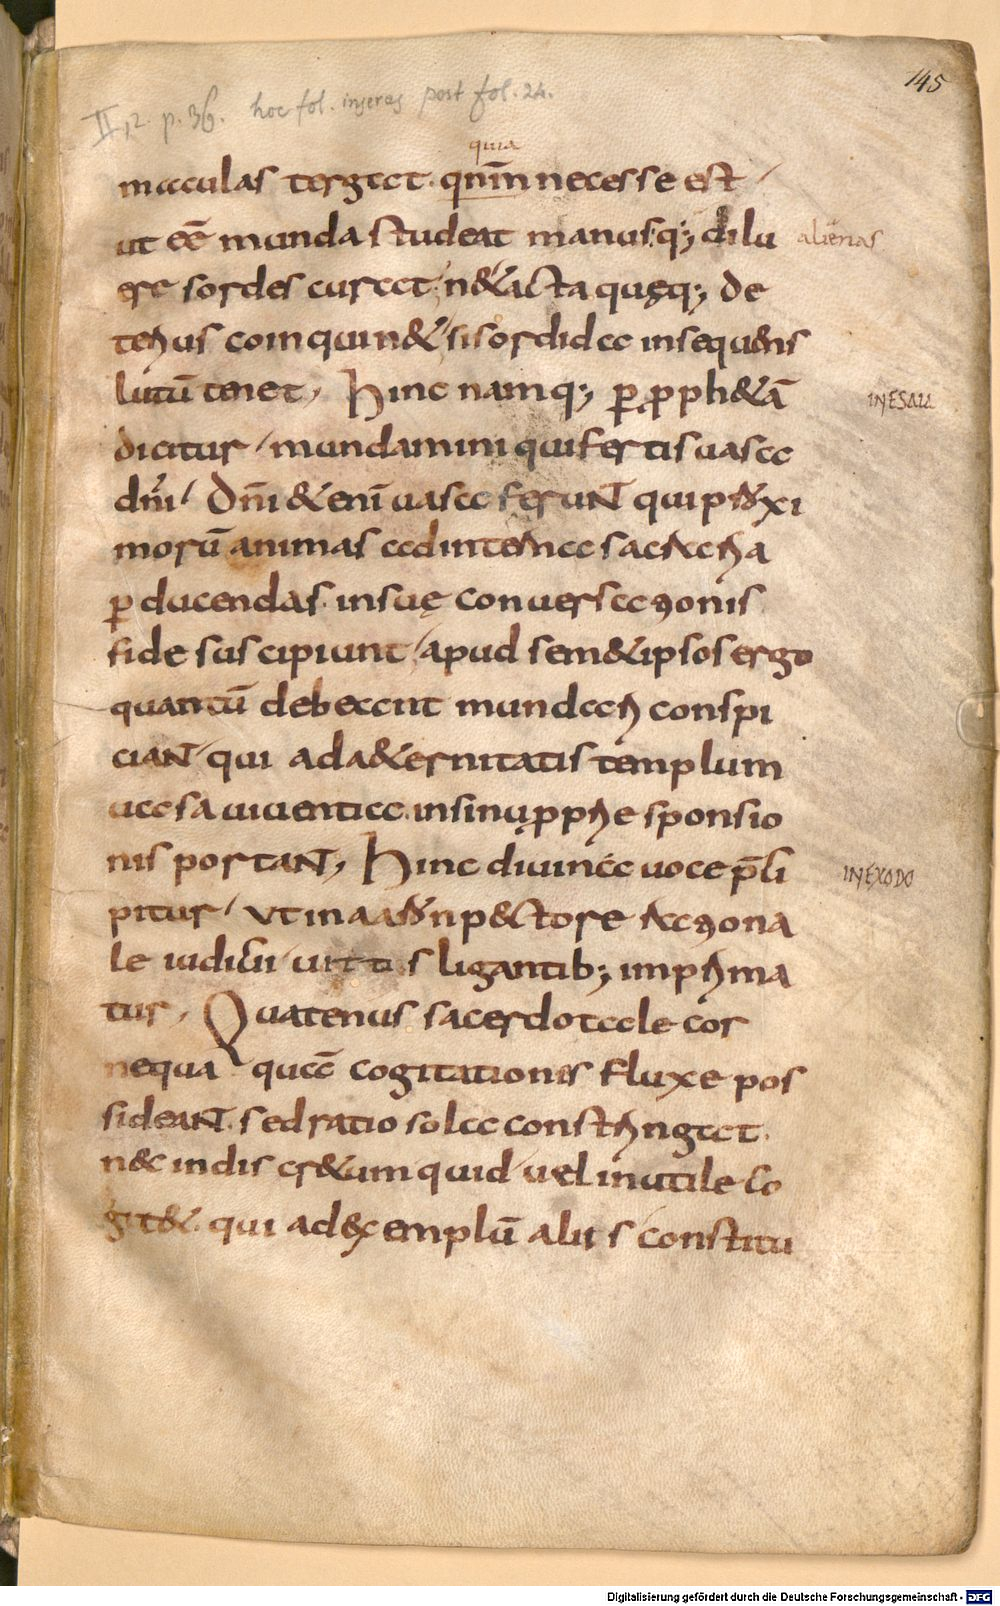 145
II, 2. p. 36. hoc fol. inseras post fol. 24.
quia
maculas terget. qnm̄ necesse est
ut eē munda studeat manusq; dilu
alienas
ere sordes curet. n& tacta quęq; de
terius coinquin& si sordida insequens
lutū tenet, Hinc namq; ꝑ ꝓph&ā
IN ESAIA
dicitur mundamini qui fertis uasa
dn̄i Dn̄i &enī uasa ferunt qui proxi
morū animas ad interna sacraria
ꝑducendas in suę conuersationis
fide suscipiunt apud sem&ipsos ergo
quantū debeant mundari conspi
ciant qui ad a&ernitatis templum
uasa uiuentia in sinu ꝓprię sponsio
nis portant, Hinc diuina uoce p̄ci
IN EXODO
pitur ut in aaron p&tore rationa
le iudicii uittis ligantib; imprima
tur, Quatenus sacerdotale cor
nequaquā cogitationes fluxe pos
sideant. sed ratio sola constringat.
nec indiscr&um quid uel inutile co
git&. qui ad exemplū aliis constitu
Digitalisierung gefördert durch die Deutsche Forschungsgemeinschaft - DFG